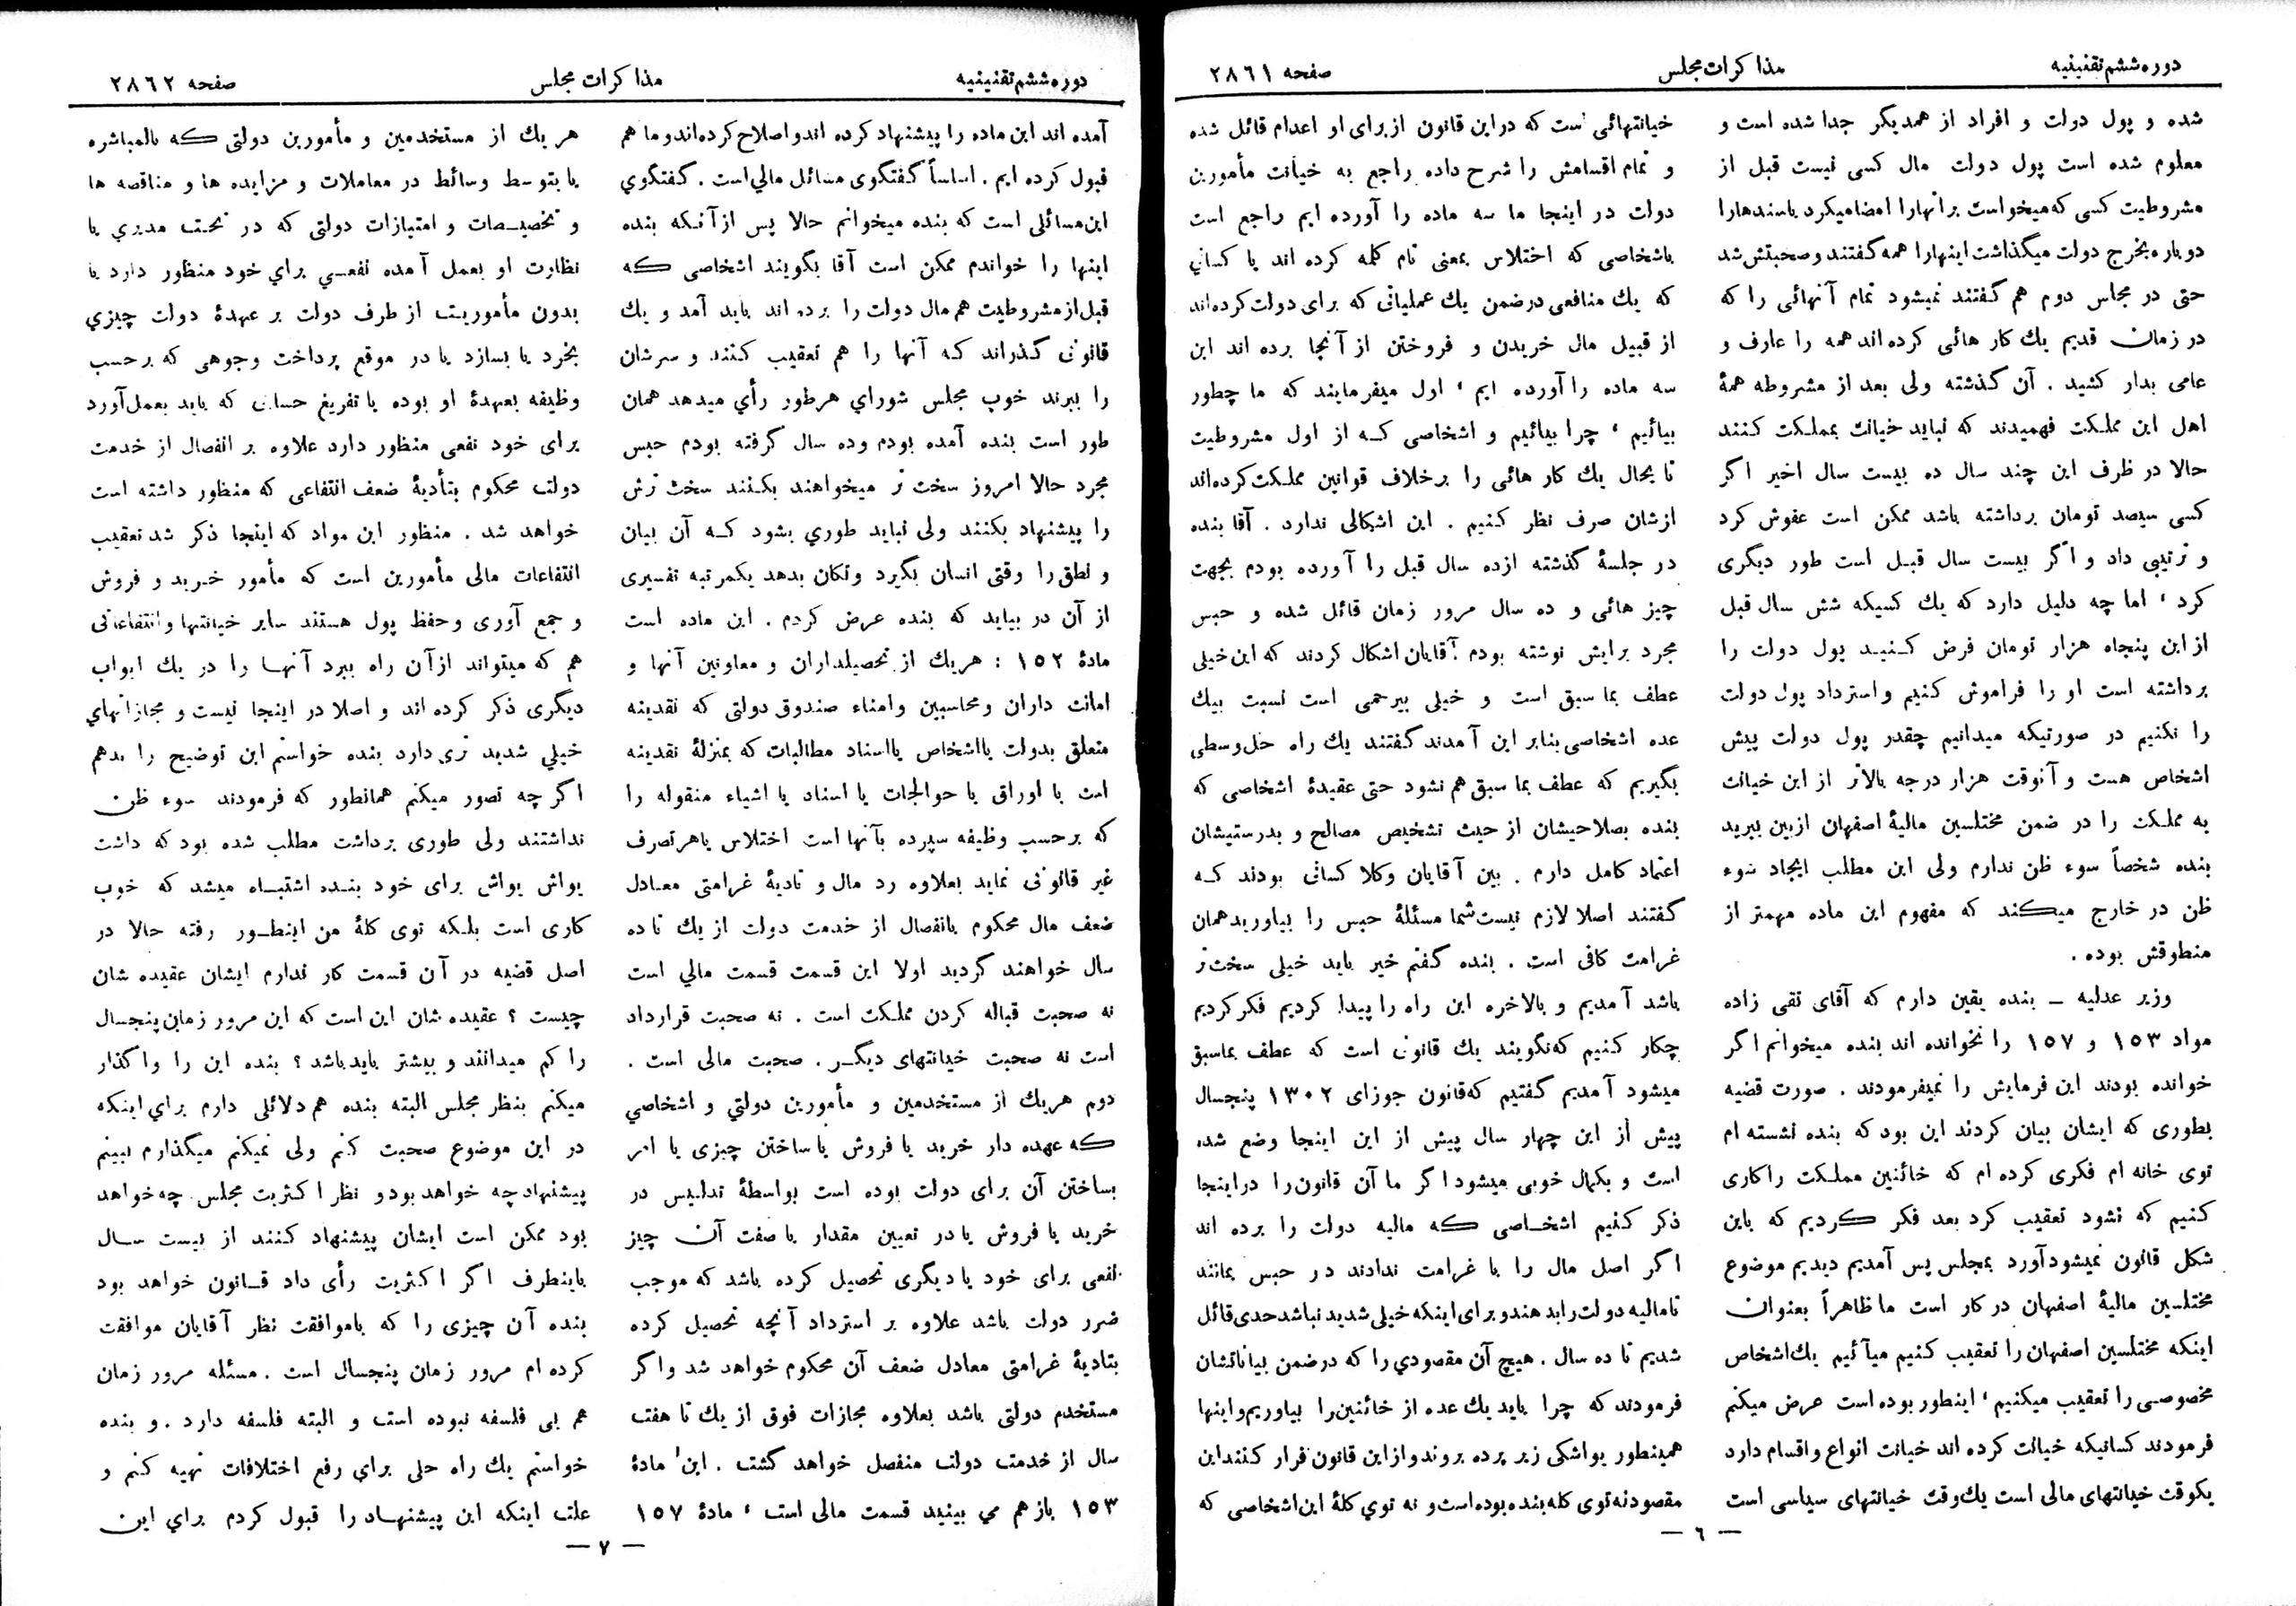 دوره ششم تقنینیه
مذاکرات مجلس
صفحه ۲۸۶۱
شده و پول دولت و افراد از همدیگر جدا شده است و
معلوم شده است پول دولت مال کسی نیست قبل از
مشروطیت کسی که میخواست براتها را امضا میکرد یا سندها را
دوباره بخرج دولت میگذاشت اینهارا همه گفتند و صحبتش شد
حتی در مجلس دوم هم گفتند نمیشود تمام آنهائی را که
در زمان قدیم یك کار هائی کرده اند همه را عارف و
عامی بدار کشید . آن گذشته ولی بعد از مشروطه همهٔ
اهل این مملکت فهمیدند که نباید خیانت بمملکت کنند
حالا در ظرف این چند سال ده بیست سال اخیر اگر
کسی سیصد تومان برداشته باشد ممکن است عفوش کرد
و ترتیبی داد و اگر بیست سال قبل است طور دیگری
کرد ، اما چه دلیل دارد که یك کسیکه شش سال قبل
از این پنجاه هزار تومان فرض کنید پول دولت را
برداشته است او را فراموش کنیم و استرداد پول دولت
را نکنیم در صورتیکه میدانیم چقدر پول دولت پیش
اشخاص هست و آنوقت هزار درجه بالاتر از این خیانت
به مملکت را در ضمن مختلسین مالیهٔ اصفهان ازبین ببرید
بنده شخصاً سوء ظن ندارم ولی این مطلب ایجاد سوء
ظن در خارج میکند که مفهوم این ماده مهمتر از
منطوقش بوده .
وزیر عدلیه ــ بنده یقین دارم که آقای تقی زاده
مواد ۱۵۳ و ۱۵۷ را نخوانده اند بنده میخوانم اگر
خوانده بودند این فرمایش را نمیفرمودند . صورت قضیه
بطوری که ایشان بیان کردند این بود که بنده نشسته ام
توی خانه ام فکری کرده ام که خائنین مملکت را کاری
کنیم که نشود تعقیب کرد بعد فکر کردیم که باین
شکل قانون نمیشود آورد بمجلس پس آمدیم دیدیم موضوع
مختلسین مالیهٔ اصفهان در کار است ما ظاهراً بعنوان
اینکه مختلسین اصفهان را تعقیب کنیم میآئیم یك اشخاص
مخصوصی را تعقیب میکنیم ، اینطور بوده است عرض میکنم
فرمودند کسانیکه خیانت کرده اند خیانت انواع و اقسام دارد
یکوقت خیانتهای مالی است یك وقت خیانتهای سیاسی است
خیانتهائی است که در این قانون از برای او اعدام قائل شده
و تمام اقسامش را شرح داده راجع به خیانت مأمورین
دولت در اینجا ما سه ماده را آورده ایم راجع است
باشخاصی که اختلاس بمعنی تام کلمه کرده اند یا کسانی
که یك منافعی در ضمن یك عملیاتی که برای دولت کرده اند
از قبیل مال خریدن و فروختن از آنجا برده اند این
سه ماده را آورده ایم ، اول میفرمایند که ما چطور
بیائیم ، چرا بیائیم و اشخاصی که از اول مشروطیت
تا بحال یك کار هائی را برخلاف قوانین مملکت کرده اند
ازشان صرف نظر کنیم . این اشکالی ندارد . آقا بنده
در جلسهٔ گذشته ازده سال قبل را آورده بودم بجهت
چیز هائی و ده سال مرور زمان قائل شده و حبس
مجرد برایش نوشته بودم آقایان اشکال کردند که این خیلی
عطف بما سبق است و خیلی بیرحمی است نسبت بیك
عده اشخاصی بنابر این آمدند گفتند یك راه حل وسطی
بگیریم که عطف بما سبق هم نشود حتی عقیدهٔ اشخاصی که
بنده بصلاحیشان از حیث تشخیص مصالح و بدرستیشان
اعتماد کامل دارم . بین آقایان وکلا کسانی بودند که
گفتند اصلا لازم نیست شما مسئلهٔ حبس را بیاورید همان
غرامت کافی است . بنده گفتم خیر باید خیلی سخت تر
باشد آمدیم و بالاخره این راه را پیدا کردیم فکر کردیم
چکار کنیم که نگویند یك قانونی است که عطف بماسبق
میشود آمدیم گفتیم که قانون جوزای ۱۳۰۲ پنجسال
پیش از این چهار سال پیش از این اینجا وضع شده
است و بکمال خوبی میشود اگر ما آن قانون را در اینجا
ذکر کنیم اشخاصی که مالیه دولت را برده اند
اگر اصل مال را یا غرامت ندادند در حبس بمانند
تا مالیه دولت را بدهند و برای اینکه خیلی شدید نباشد حدی قائل
شدیم تا ده سال . هیچ آن مقصودی را که در ضمن بیاناتشان
فرمودند که چرا باید یك عده از خائنین را بیاوریم و اینها
همینطور یواشکی زیر پرده بروند و از این قانون فرار کنند این
مقصود نه توی کله بنده بوده است و نه توی کلهٔ این اشخاصی که
— ٦ —
دوره ششم تقنینیه
مذاکرات مجلس
صفحه ۲۸۶۲
آمده اند این ماده را پیشنهاد کرده اند و اصلاح کرده اند و ما هم
قبول کرده ایم . اساساً گفتگوی مسائل مالی است . گفتگوی
این مسائلی است که بنده میخوانم حالا پس از آنکه بنده
اینها را خواندم ممکن است آقا بگویند اشخاصی که
قبل از مشروطیت هم مال دولت را برده اند باید آمد و یك
قانونی گذراند که آنها را هم تعقیب کنند و سرشان
را ببرند خوب مجلس شورای هرطور رأی میدهد همان
طور است بنده آمده بودم وده سال گرفته بودم حبس
مجرد حالا امروز سخت تر میخواهند بکنند سخت ترش
را پیشنهاد بکنند ولی نباید طوری بشود که آن بیان
و نطق را وقتی انسان بگیرد و تکان بدهد یکمرتبه تفسیری
از آن در بیاید که بنده عرض کردم . این ماده است
مادهٔ ۱۵۲ : هریك از تحصیلداران و معاونین آنها و
امانت داران و محاسبین و امناء صندوق دولتی که نقدینه
متعلق بدولت یا اشخاص یا اسناد مطالبات که بمنزلهٔ نقدینه
است یا اوراق یا حوالجات یا اسناد یا اشیاء منقوله را
که برحسب وظیفه سپرده بآنها است اختلاس یا هر تصرف
غیر قانونی نماید بعلاوه رد مال و تادیهٔ غرامتی معادل
ضعف مال محکوم بانفصال از خدمت دولت از یك تا ده
سال خواهند گردید اولا این قسمت قسمت مالی است
نه صحبت قباله کردن مملکت است . نه صحبت قرارداد
است نه صحبت خیانتهای دیگر . صحبت مالی است .
دوم هریك از مستخدمین و مأمورین دولتی و اشخاصی
که عهده دار خرید یا فروش یا ساختن چیزی یا امر
بساختن آن برای دولت بوده است بواسطهٔ تدلیس در
خرید یا فروش یا در تعیین مقدار یا صفت آن چیز
نفعی برای خود یا دیگری تحصیل کرده باشد که موجب
ضرر دولت باشد علاوه بر استرداد آنچه تحصیل کرده
بتادیهٔ غرامتی معادل ضعف آن محکوم خواهد شد و اگر
مستخدم دولتی باشد بعلاوه مجازات فوق از یك تا هفت
سال از خدمت دولت منفصل خواهد گشت . این مادهٔ
۱۵۳ باز هم می بینید قسمت مالی است ، مادهٔ ۱۵۷
هر یك از مستخدمین و مأمورین دولتی که بالمباشره
یا بتوسط وسائط در معاملات و مزایده ها و مناقصه ها
و تخصیصات و امتیازات دولتی که در تحت مدیری یا
نظارت او بعمل آمده نفعی برای خود منظور دارد یا
بدون مأموریت از طرف دولت بر عهدهٔ دولت چیزی
بخرد یا بسازد یا در موقع پرداخت وجوهی که برحسب
وظیفه بعهدهٔ او بوده یا تفریغ حسابی که باید بعمل آورد
برای خود نفعی منظور دارد علاوه بر انفصال از خدمت
دولت محکوم بتأدیهٔ ضعف انتفاعی که منظور داشته است
خواهد شد . منظور این مواد که اینجا ذکر شد تعقیب
انتفاعات مالی مأمورین است که مأمور خرید و فروش
و جمع آوری و حفظ پول هستند سایر خیانتها و انتفاعاتی
هم که میتواند از آن راه ببرد آنها را در یك ابواب
دیگری ذکر کرده اند و اصلا در اینجا نیست و مجازاتهای
خیلی شدید تری دارد بنده خواستم این توضیح را بدهم
اگر چه تصور میکنم همانطور که فرمودند سوء ظن
نداشتند ولی طوری برداشت مطلب شده بود که داشت
یواش یواش برای خود بنده اشتباه میشد که خوب
کاری است بلکه توی کلهٔ من اینطور رفته حالا در
اصل قضیه در آن قسمت کار ندارم ایشان عقیده شان
چیست ؟ عقیده شان این است که این مرور زمان پنجسال
را کم میدانند و بیشتر باید باشد ؟ بنده این را واگذار
میکنم بنظر مجلس البته بنده هم دلائلی دارم برای اینکه
در این موضوع صحبت کنم ولی نمیکنم میگذارم ببینم
پیشنهاد چه خواهد بود و نظر اکثریت مجلس چه خواهد
بود ممکن است ایشان پیشنهاد کنند از بیست سال
باینطرف اگر اکثریت رأی داد قانون خواهد بود
بنده آن چیزی را که باموافقت نظر آقایان موافقت
کرده ام مرور زمان پنجسال است . مسئله مرور زمان
هم بی فلسفه نبوده است و البته فلسفه دارد . و بنده
خواستم یك راه حلی برای رفع اختلافات تهیه کنم و
علت اینکه این پیشنهاد را قبول کردم برای این
— ۷ —